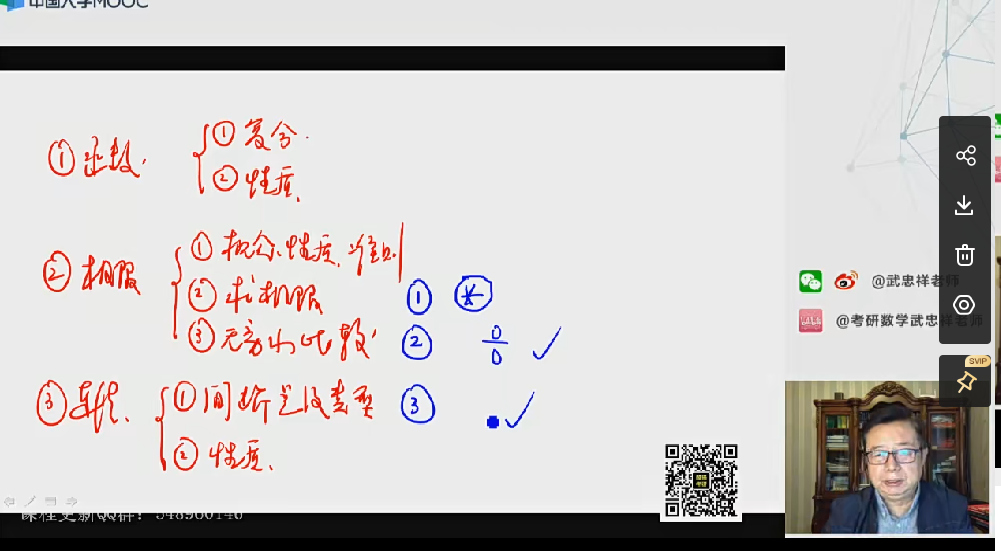 中国大学MOOC
① 函数. ① 复合.
② 性质.
② 极限 ① 概念、性质、准则
② 求极限 ① *
③ 无穷小比较. ② 0/0 ✓
③ 连续. ① 间断点及类型 ③ ✓
② 性质.
@武忠祥老师
@考研数学武忠祥老师
SVIP
课程更新QQ群：548960146